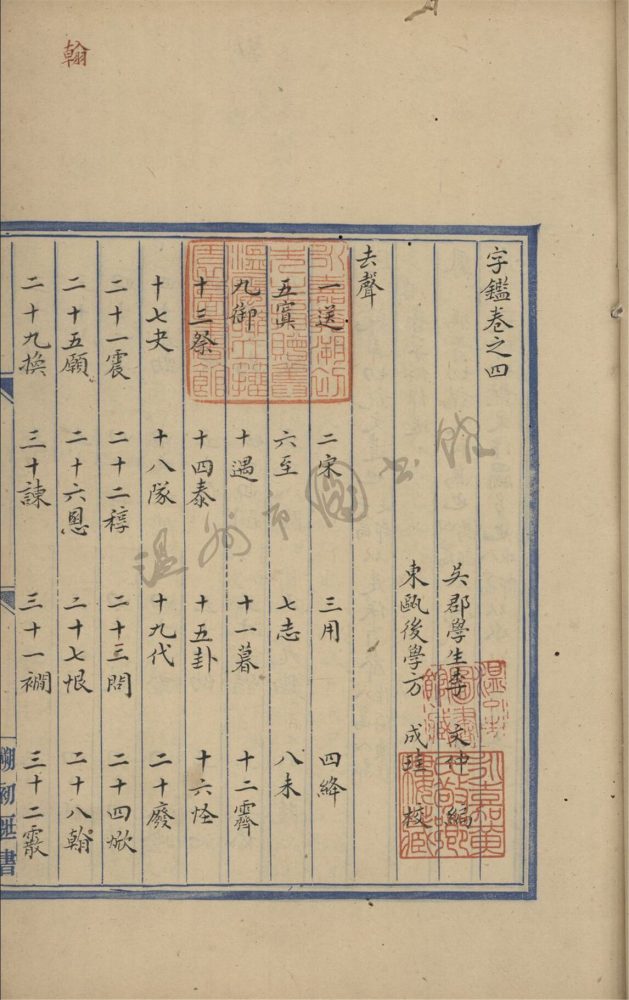 翰
字鑑卷之四
吳郡學生李文仲編
東甌後學方成珪校
去聲
一送 二宋 三用 四絳
五寘 六至 七志 八未
九御 十遇 十一暮 十二霽
十三祭 十四泰 十五卦 十六怪
十七夬 十八隊 十九代 二十廢
二十一震 二十二稕 二十三問 二十四焮
二十五願 二十六慁 二十七恨 二十八翰
二十九換 三十諫 三十一襉 三十二霰
溫州市圖書館